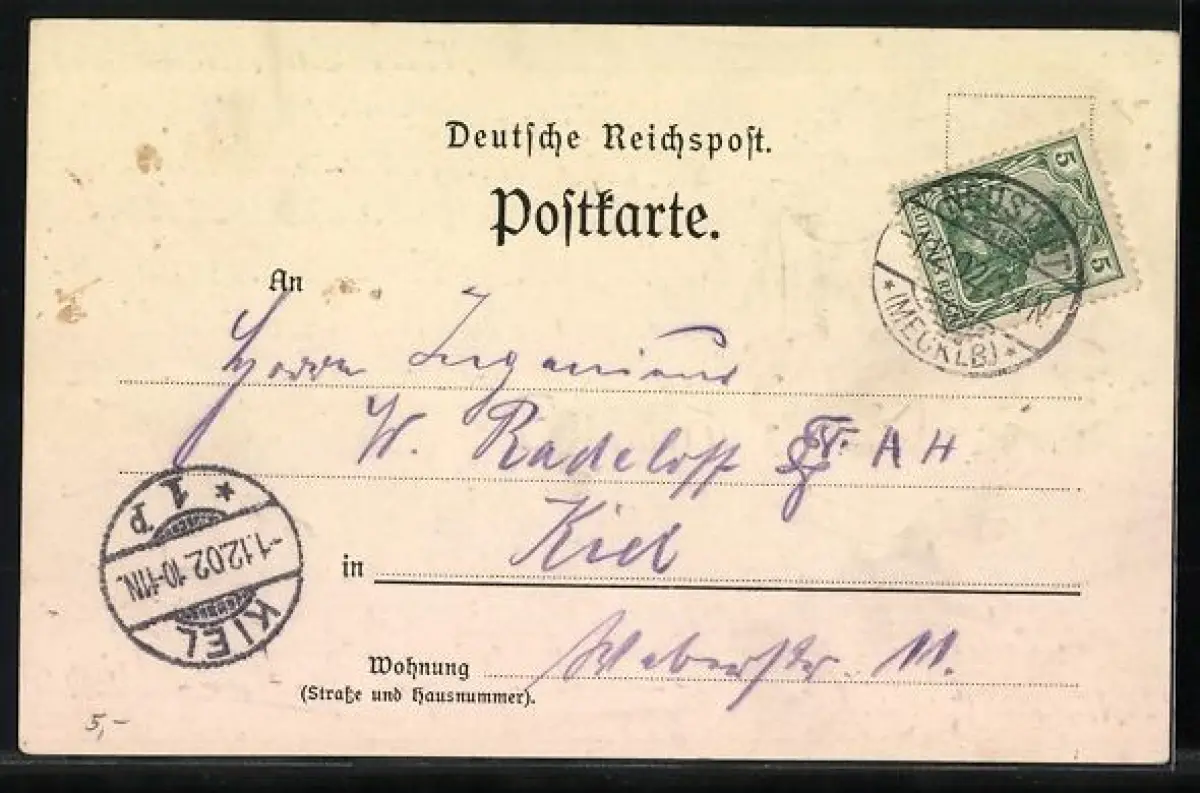 Deutsche Reichspost.
Postkarte.
5
5
(MECKLB)
An
Herrn Ingenieur
W. Radeloff AH
in Kiel
* 1 p
-1.12.02. 10-11N.
KIEL
Wohnung Weberstr.
(Straße und Hausnummer).
5,-